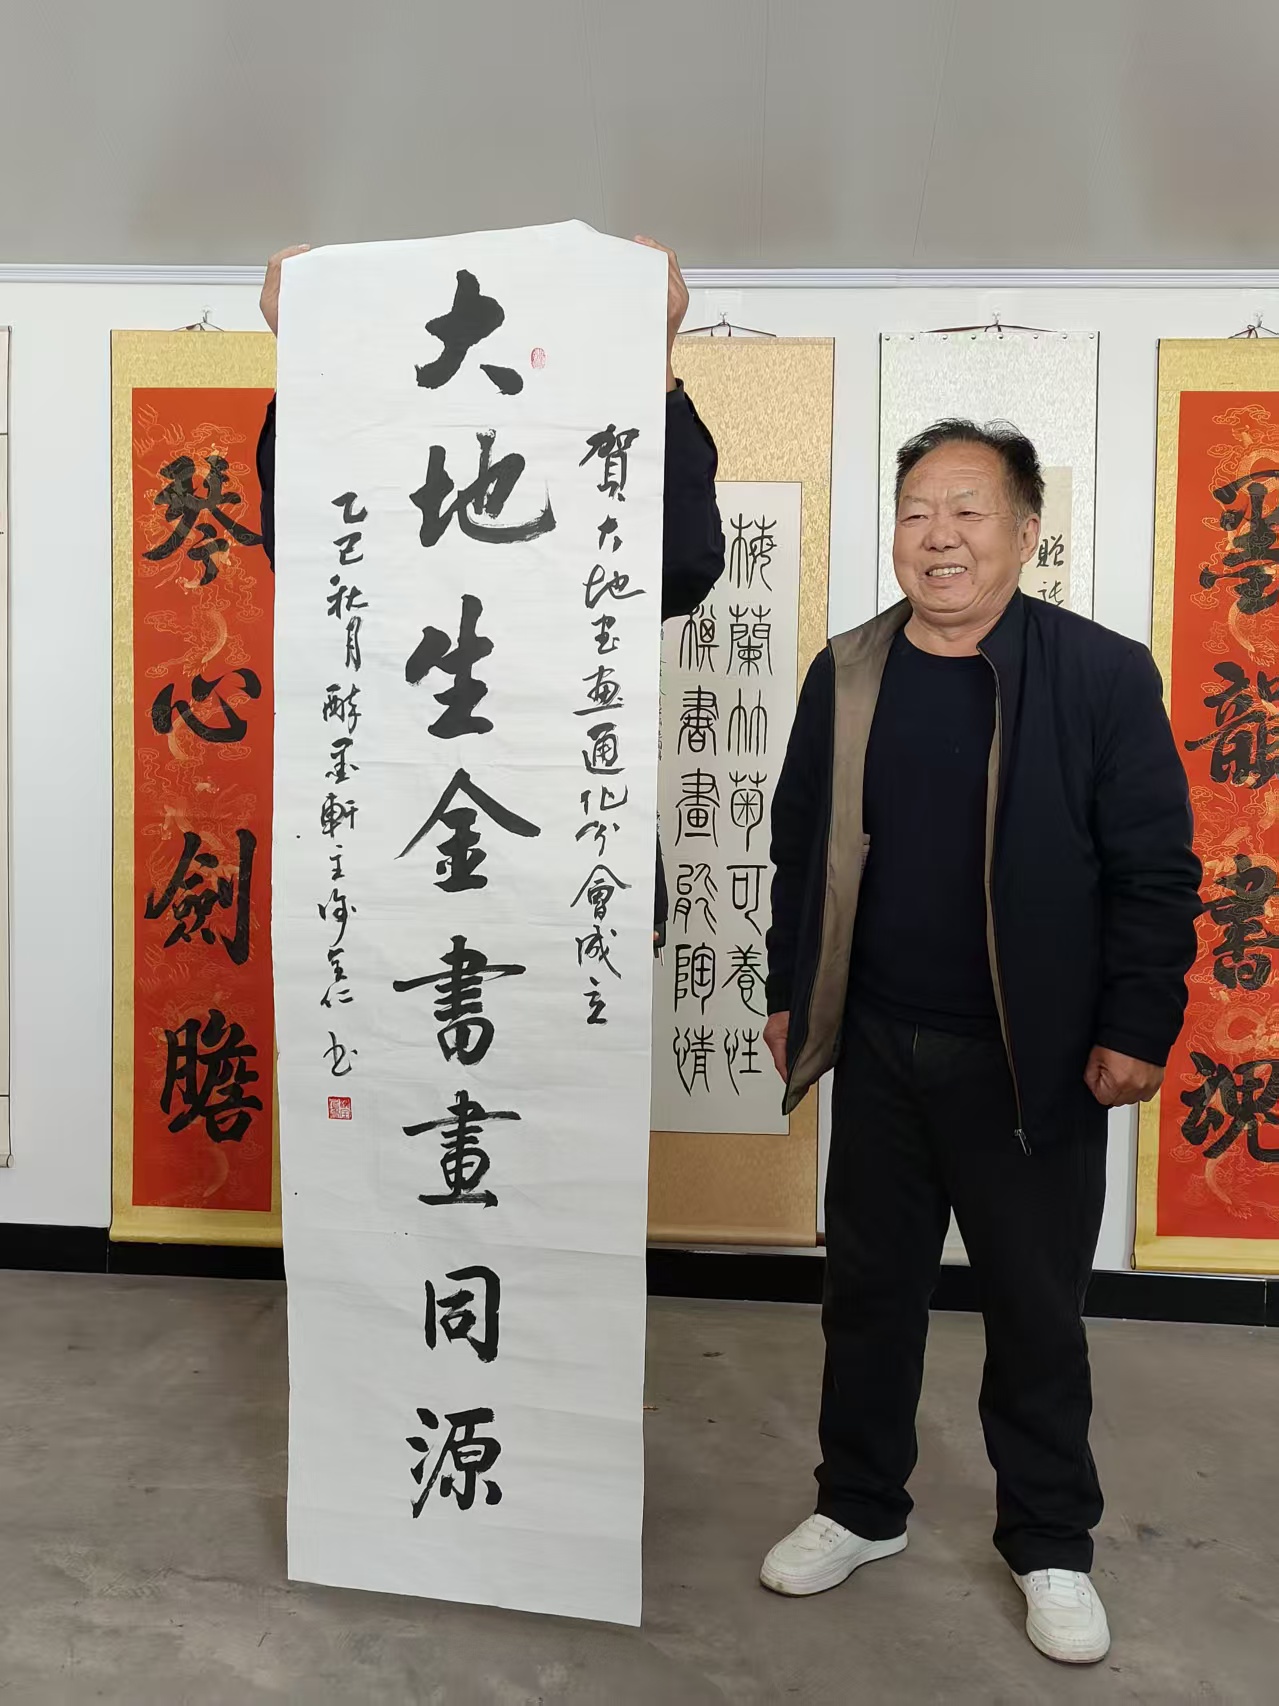 大地生金書畫同源
賀大地書画通化分會成立
乙巳秋月醉墨軒主
全仁书
琴心劍膽
梅蘭竹菊可養性
書畫能陶情
贈
墨龍書魂